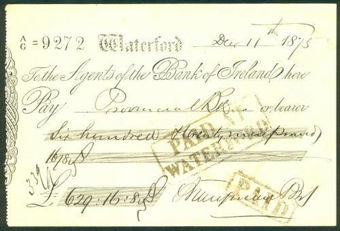 A/G = 9272 Waterford Dec 11th 1875
To the Agents of the Bank of Ireland here
Pay Provincial Bk or bearer
Six hundred & twenty nine pounds
16/8
PAID AT
WATERFORD
£ 629 : 16 : 8
PAID